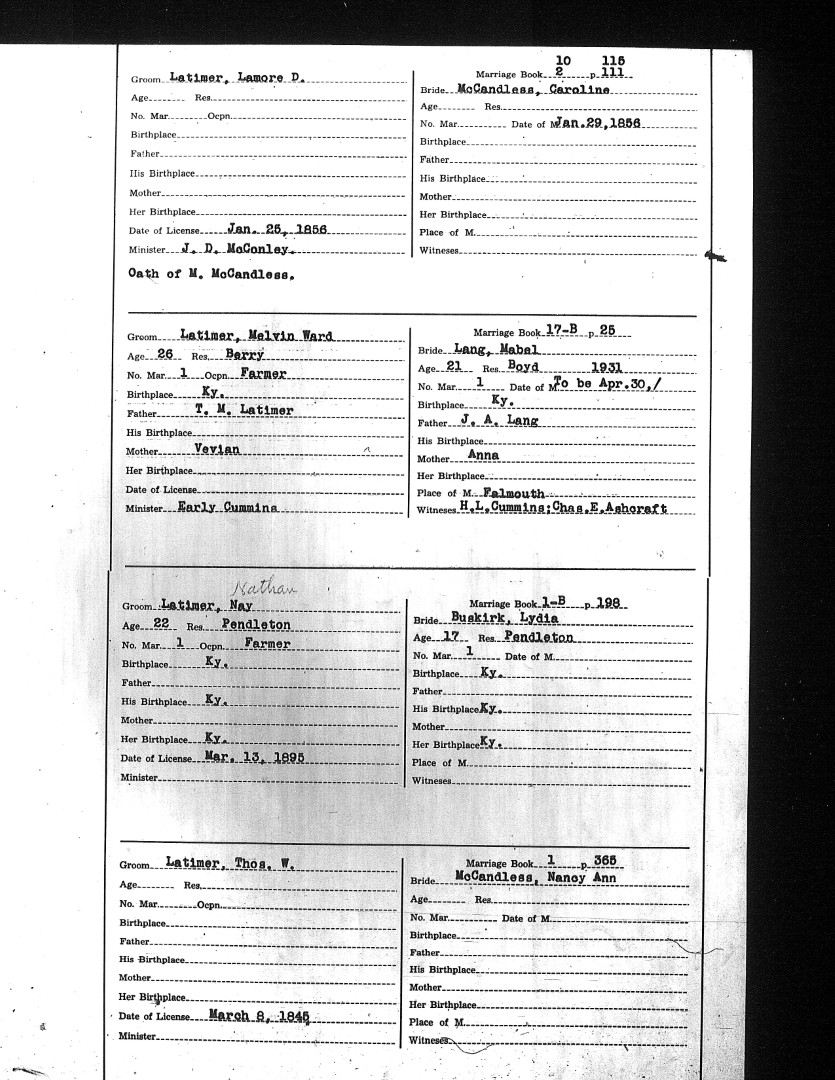 10 115
Groom Latimer, Lamore D. Marriage Book 2 p. 111
Age Res. Bride McCandless, Caroline
No. Mar. Ocpn. Age Res.
Birthplace No. Mar. Date of M. Jan.29,1856
Father Birthplace
His Birthplace Father
Mother His Birthplace
Her Birthplace Mother
Date of License Jan. 25, 1856 Her Birthplace
Minister J. D. McConley. Place of M.
Witnesses
Oath of M. McCandless.
Groom Latimer, Melvin Ward Marriage Book 17-B p. 25
Age 26 Res. Berry Bride Lang, Mabel
No. Mar. 1 Ocpn. Farmer Age 21 Res. Boyd 1931
Birthplace Ky. No. Mar. 1 Date of M. To be Apr.30,/
Father T. M. Latimer Birthplace Ky.
His Birthplace Father J. A. Lang
Mother Vevian His Birthplace
Her Birthplace Mother Anna
Date of License Her Birthplace
Minister Early Cummins Place of M. Falmouth
Witnesses H.L.Cummins;Chas.E.Ashcraft
Nathan
Groom Latimer, Nay Marriage Book 1-B p. 198
Age 22 Res. Pendleton Bride Buskirk, Lydia
No. Mar. 1 Ocpn. Farmer Age 17 Res. Pendleton
Birthplace Ky. No. Mar. 1 Date of M.
Father Birthplace Ky.
His Birthplace Ky. Father
Mother His Birthplace Ky.
Her Birthplace Ky. Mother
Date of License Mar. 13, 1895 Her Birthplace Ky.
Minister Place of M.
Witnesses
Groom Latimer, Thos. W. Marriage Book 1 p. 365
Age Res. Bride McCandless, Nancy Ann
No. Mar. Ocpn. Age Res.
Birthplace No. Mar. Date of M.
Father Birthplace
His Birthplace Father
Mother His Birthplace
Her Birthplace Mother
Date of License March 8, 1845 Her Birthplace
Minister Place of M.
Witnesses